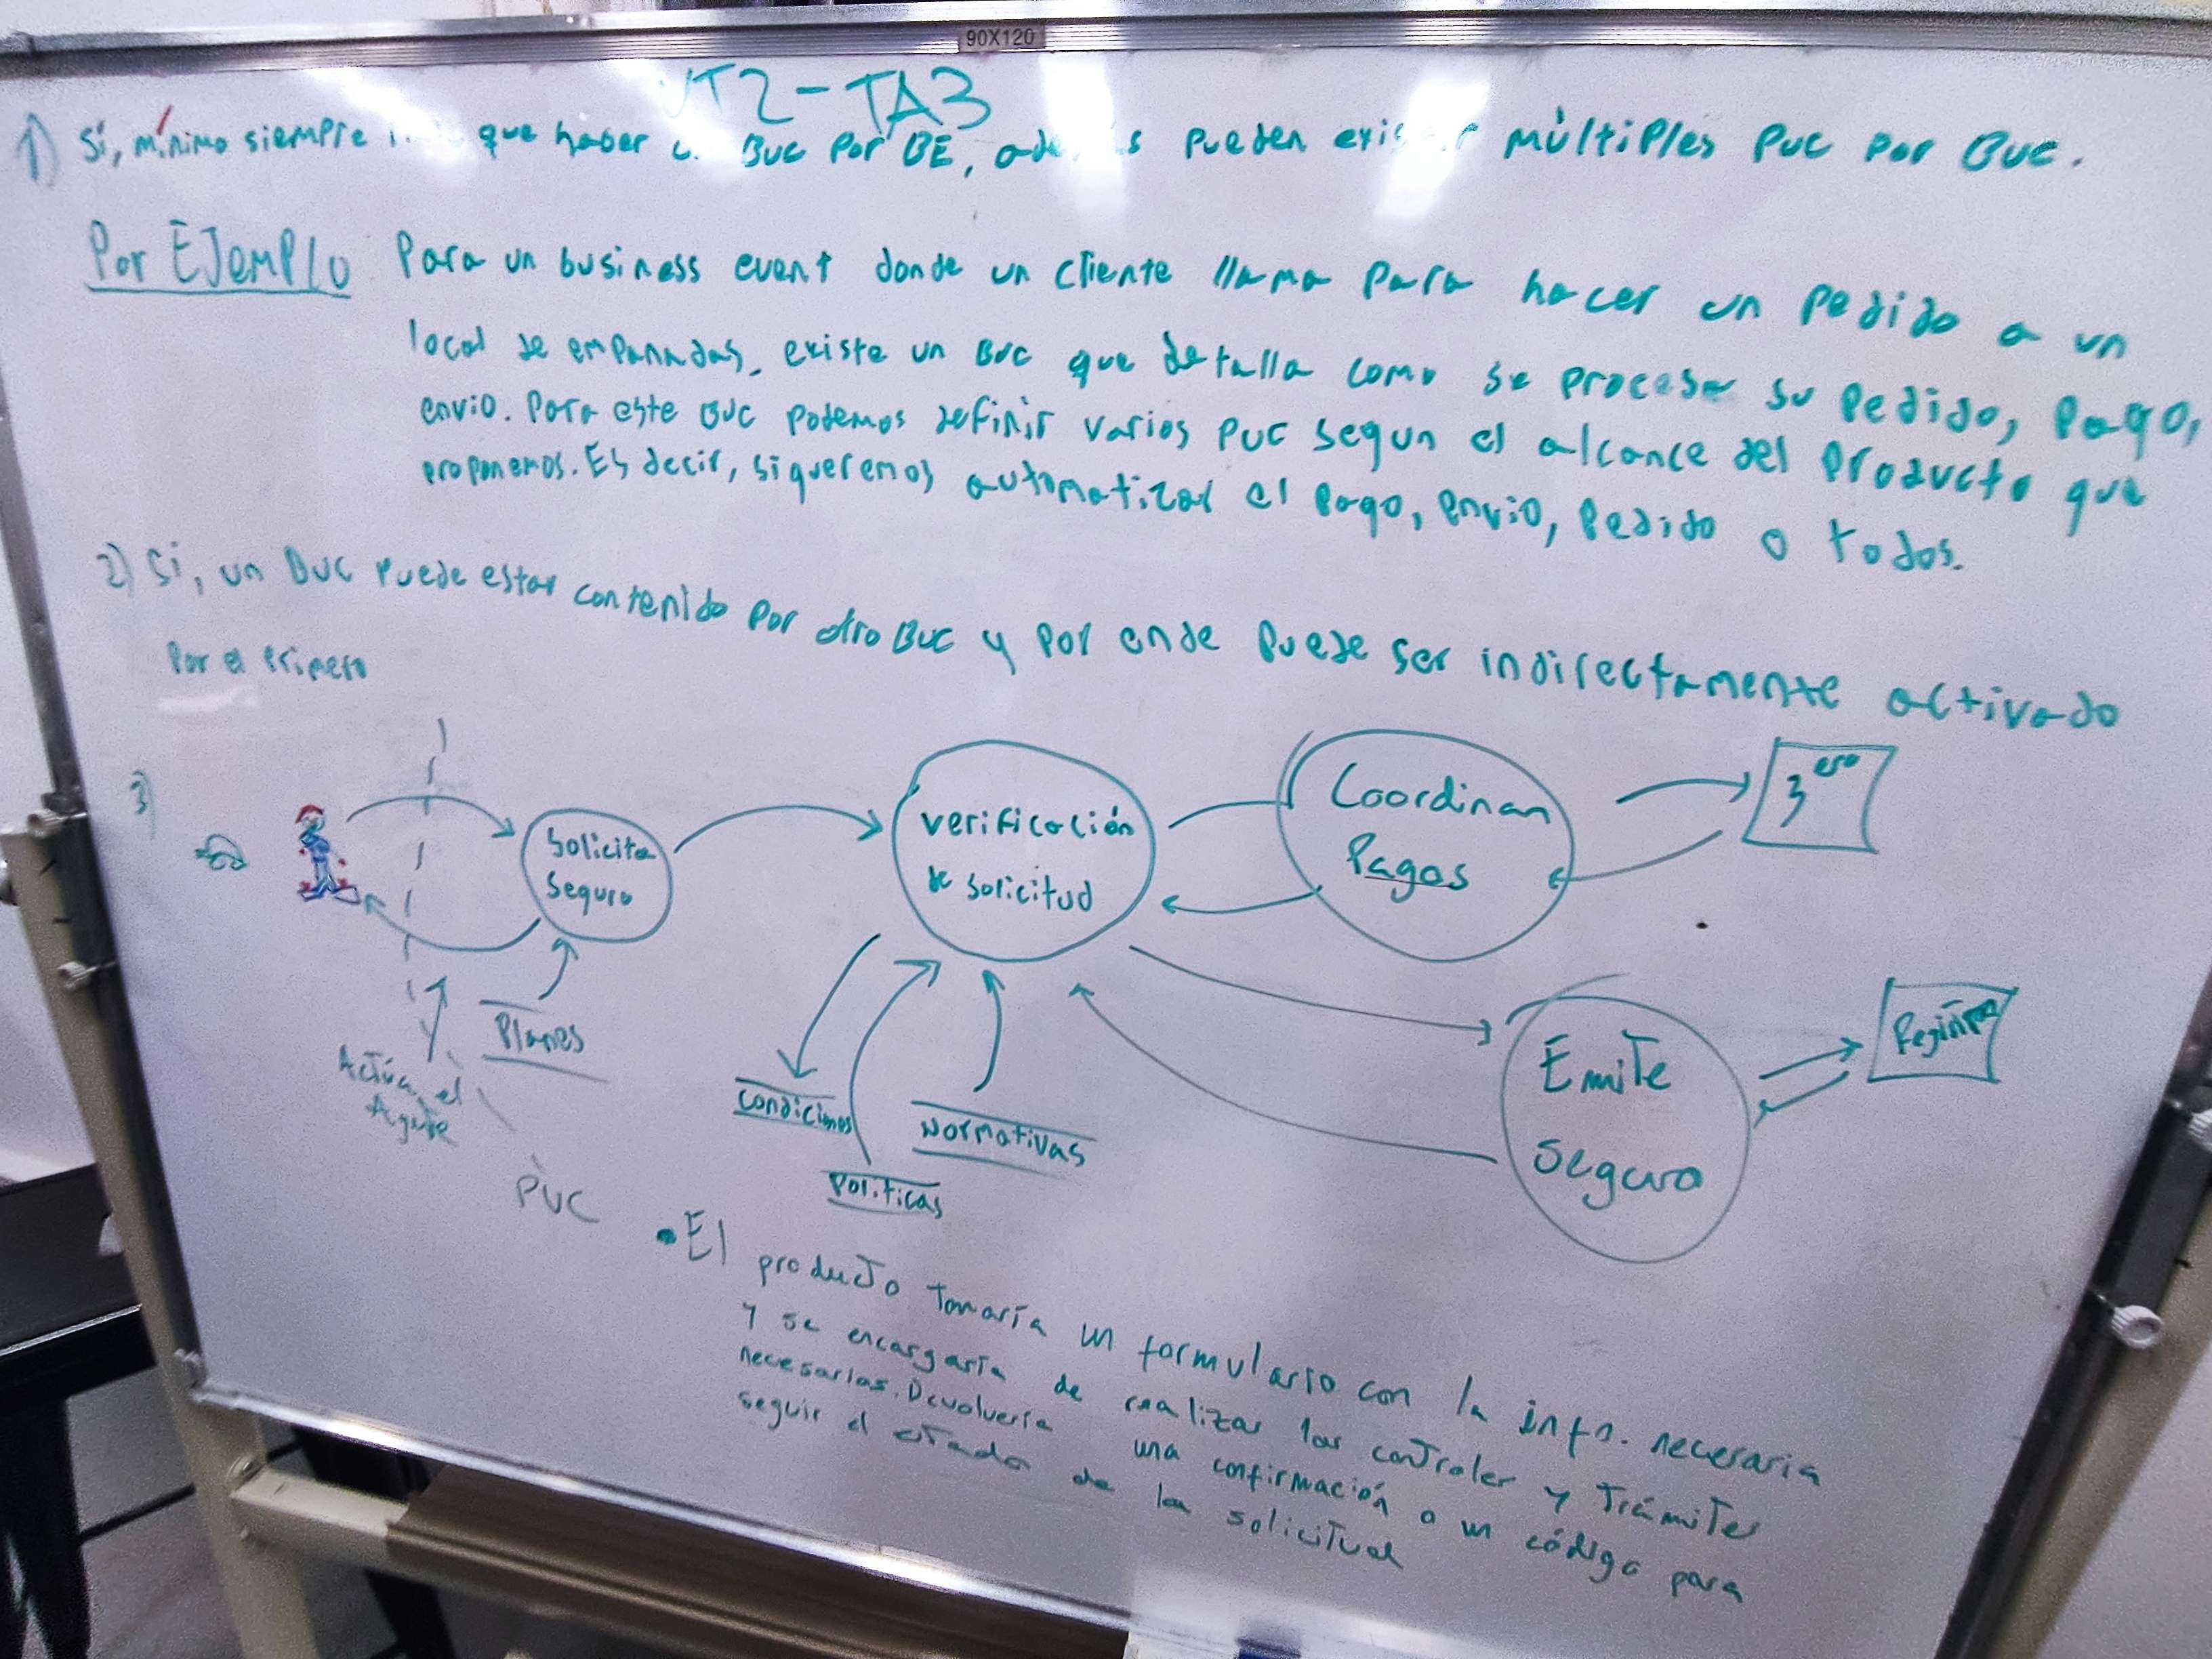 90X120
UT2-TA3
1) Sí, mínimo siempre que haber un BUC por BE, además pueden existir múltiples PUC por BUC.
Por Ejemplo Para un business event donde un cliente llama para hacer un pedido a un
local de empanadas, existe un BUC que detalla como se procesa su pedido, pago,
envio. Para este BUC podemos definir varios PUC segun el alcance del producto que
proponemos. Es decir, si queremos automatizar el pago, envio, pedido o todos.
2) Si, un BUC puede estar contenido por otro BUC y por ende puede ser indirectamente activado
por el primero
3)
Solicita
Seguro
verificación
de solicitud
Coordinan
Pagos
3eros
Planes
Actúa el
Agente
PUC
Condiciones
Normativas
Políticas
Emite
Seguro
• El producto tomaría un formulario con la info. necesaria
y se encargaría de realizar los controles y trámites
necesarios. Devolvería una confirmación o un código para
seguir el estado de la solicitud